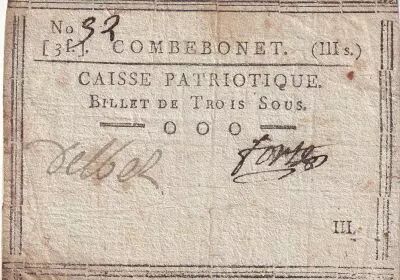 No 32
[3f.]. COMBEBONET. (III s.)
CAISSE PATRIOTIQUE.
BILLET DE TROIS SOUS.
OOO
Delbet
III.